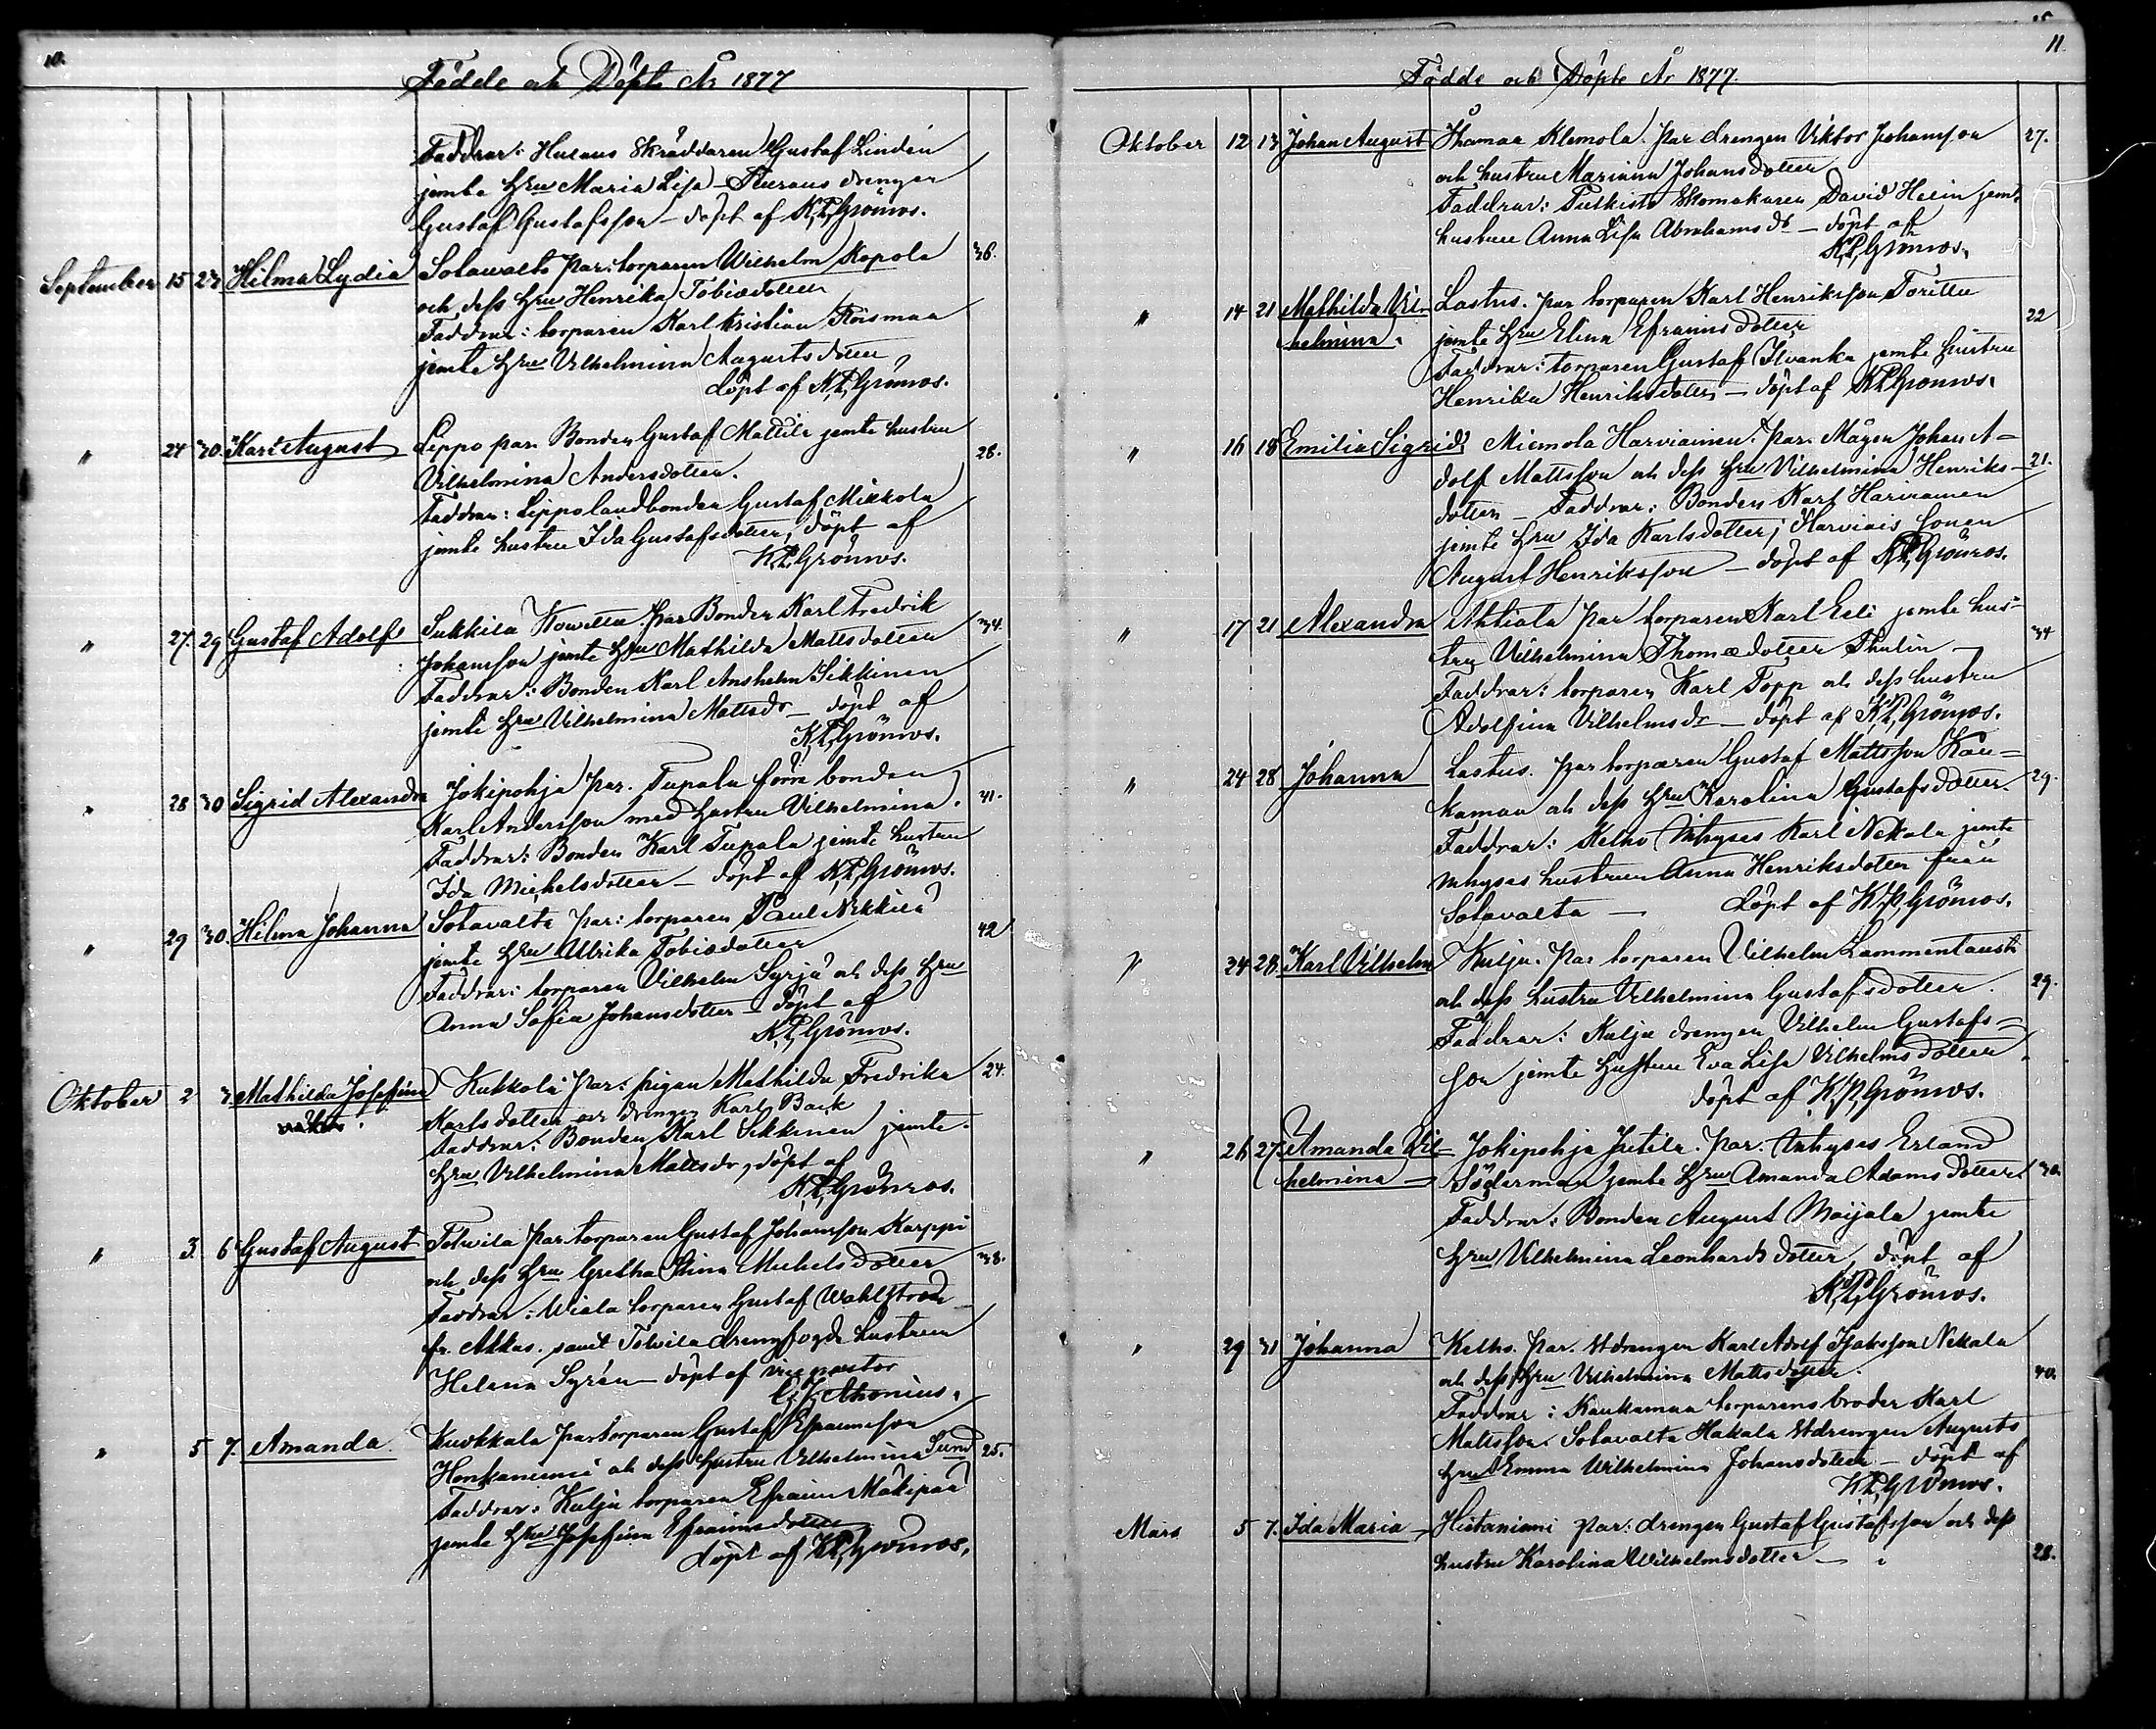 10.
Födde och Döpte År 1877
Faddrar: Huraus Skräddaren Gustaf Lindén
jemte Hru Maria Lisa – Huraus drengen
Gustaf Gustafsson – döpt af K.P. Grönros.
September 15 23 Hilma Lydia Sotavalta Par: torparen Wilhelm Kopola 36.
och dess Hru Henrika Tobiædotter
Faddrar: torparen Karl Kristian
jemte Hru Vilhelmina Augustsdotter
döpt af K.P. Grönros.
" 24 30. Karl August Lippo par. Bonden Gustaf Mattila jemte hustru 28.
Vilhelmina Andersdotter.
Faddrar: Lippo landbonden Gustaf Mikkola
jemte hustru Ida Gustafsdotter, döpt af
K.P. Grönros.
" 27. 29 Gustaf Adolf Sukkila Par Bonden Karl Fredrik 34.
Johansson jemte Hru Mathilda Mattsdotter
Faddrar: Bonden Karl Anshelm Sikkinen
jemte Hru Vilhelmina Mattsdr – döpt af
K.P. Grönros.
" 28 30 Sigrid Alexandra Jokipohja Par. Tupala förra bonden 31.
Karl Andersson med Hustru Vilhelmina.
Faddrar: Bonden Karl Tupala jemte hustru
Ida Michelsdotter – döpt af K.P. Grönros.
" 29 30. Hilma Johanna Sotavalta Par: torparen Paul Nikkilä 42
jemte Hru Ullrika Tobiædotter
Faddrar: torparen Vilhelm Syrjä och dess Hru
Anna Sofia Johansdotter – döpt af
K.P. Grönros.
Oktober 2 3. Mathilda Josefina Kukkola Par: pigan Mathilda Fredrika 24.
Karlsdotter och drengen Karl Back
Faddrar: Bonden Karl Sikkinen jemte
Hru Vilhelmina Mattsdr, döpt af
K.P. Grönros.
" 3. 6 Gustaf August Tolvila Par torparen Gustaf Johansson Karppi 38.
och dess Hru Gretha Stina Michelsdotter
Faddrar: Wiala torparen Gustaf Wahlström
fr. Akkas. samt Tolvila drengfogde hustrun
Helena Syrén – döpt af vice pastor
" 5 7. Amanda. Kuokkala Par torparen Gustaf Efraimsson
Honkaniemi och dess hustru Vilhelmina Sund 25.
Faddrar: Kulju torparen Efraim Mäkipää
jemte Hru Josefina Efraimsdotter
döpt af K.P. Grönros.
11
Födde och Döpte År 1877.
Oktober 12 13 Johan August Klemola. Par drengen Viktor Johansson 27.
och hustru Marianna Johansdotter
Faddrar: Skomakaren David Helin jemte
hustru Anna Lisa Abrahamsdr – döpt af
K.P. Grönros.
" 14 21 Mathilda Vil- Lastus. par torparen Karl Henriksson Torittu 22
helmina. jemte Hru Elina Efraimsdotter
Faddrar: torparen Gustaf Ilvanka jemte hustru
Henrika Henriksdotter – döpt af K.P. Grönros.
" 16 18 Emilia Sigrid Miemola Harviainen. Par. Mågen Johan A-
dolf Mattsson och dess Hru Vilhelmina Henriks- 21.
dotter – Faddrar: Bonden Karl Harviainen
jemte Hru Ida Karlsdotter; Harviais sonen
August Henriksson – döpt af K.P. Grönros.
" 17 21 Alexandra Ahtiala Par torparen Karl Eeli jemte hus-
tru Vilhelmina Thomædotter Thulin – 34
Faddrar: torparen Karl Topp och dess hustru
Adolfina Vilhelmsdr – döpt af K.P. Grönros.
" 24 28 Johanna Lastus. par torparen Gustaf Mattsson Kau- 29.
kamaa och dess Hru Karolina Gustafsdotter.
Faddrar: Kelho Inhyses Karl Nekala jemte
Inhyses hustrun Anna Henriksdotter från
Sotavalta – döpt af K.P. Grönros.
" 24 28. Karl Vilhelm Kulju. Par torparen Vilhelm Lammentausta 29.
och dess hustru Vilhelmina Gustafsdotter.
Faddrar: Kulju drengen Vilhelm Gustafs-
son jemte hustru Eva Lisa Vilhelmsdotter
döpt af K.P. Grönros.
" 26 27. Amanda Vil- Jokipohja Jutila. Par. Inhyses Erland
helmina – Söderman jemte Hru Amanda Adamsdotter. 30.
Faddrar: Bonden August Maijala jemte
Hru Vilhelmina Leonhardsdotter, döpt af
K.P. Grönros.
" 29 31 Johanna Kelho. Par. Stdrengen Karl Adolf Isaksson Nekala
och dess Hru Vilhelmina Mattsdotter. 40.
Faddrar: Kaukamaa torparens broder Karl
Mattsson. Sotavalta Hakala Stdrengen Augusts
Hru Emma Wilhelmina Johansdotter – döpt af
K.P. Grönros.
Mars 5 7. Ida Maria – Hietaniemi par: drengen Gustaf Gustafsson och dess
hustru Karolina Wilhelmsdotter – 28.